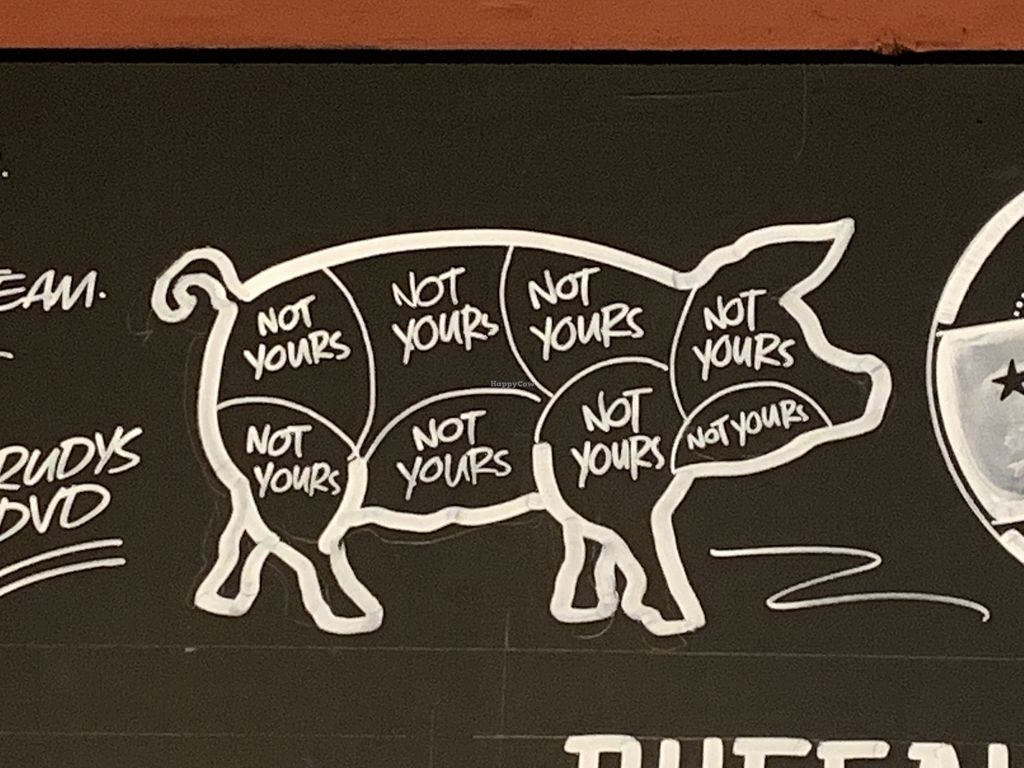 EAM.
NOT
YOURS
NOT
YOURS
NOT
YOURS
NOT
YOURS
NOT
YOURS
NOT
YOURS
NOT
YOURS
NOT YOURS
RUDYS
DVD
HappyCow